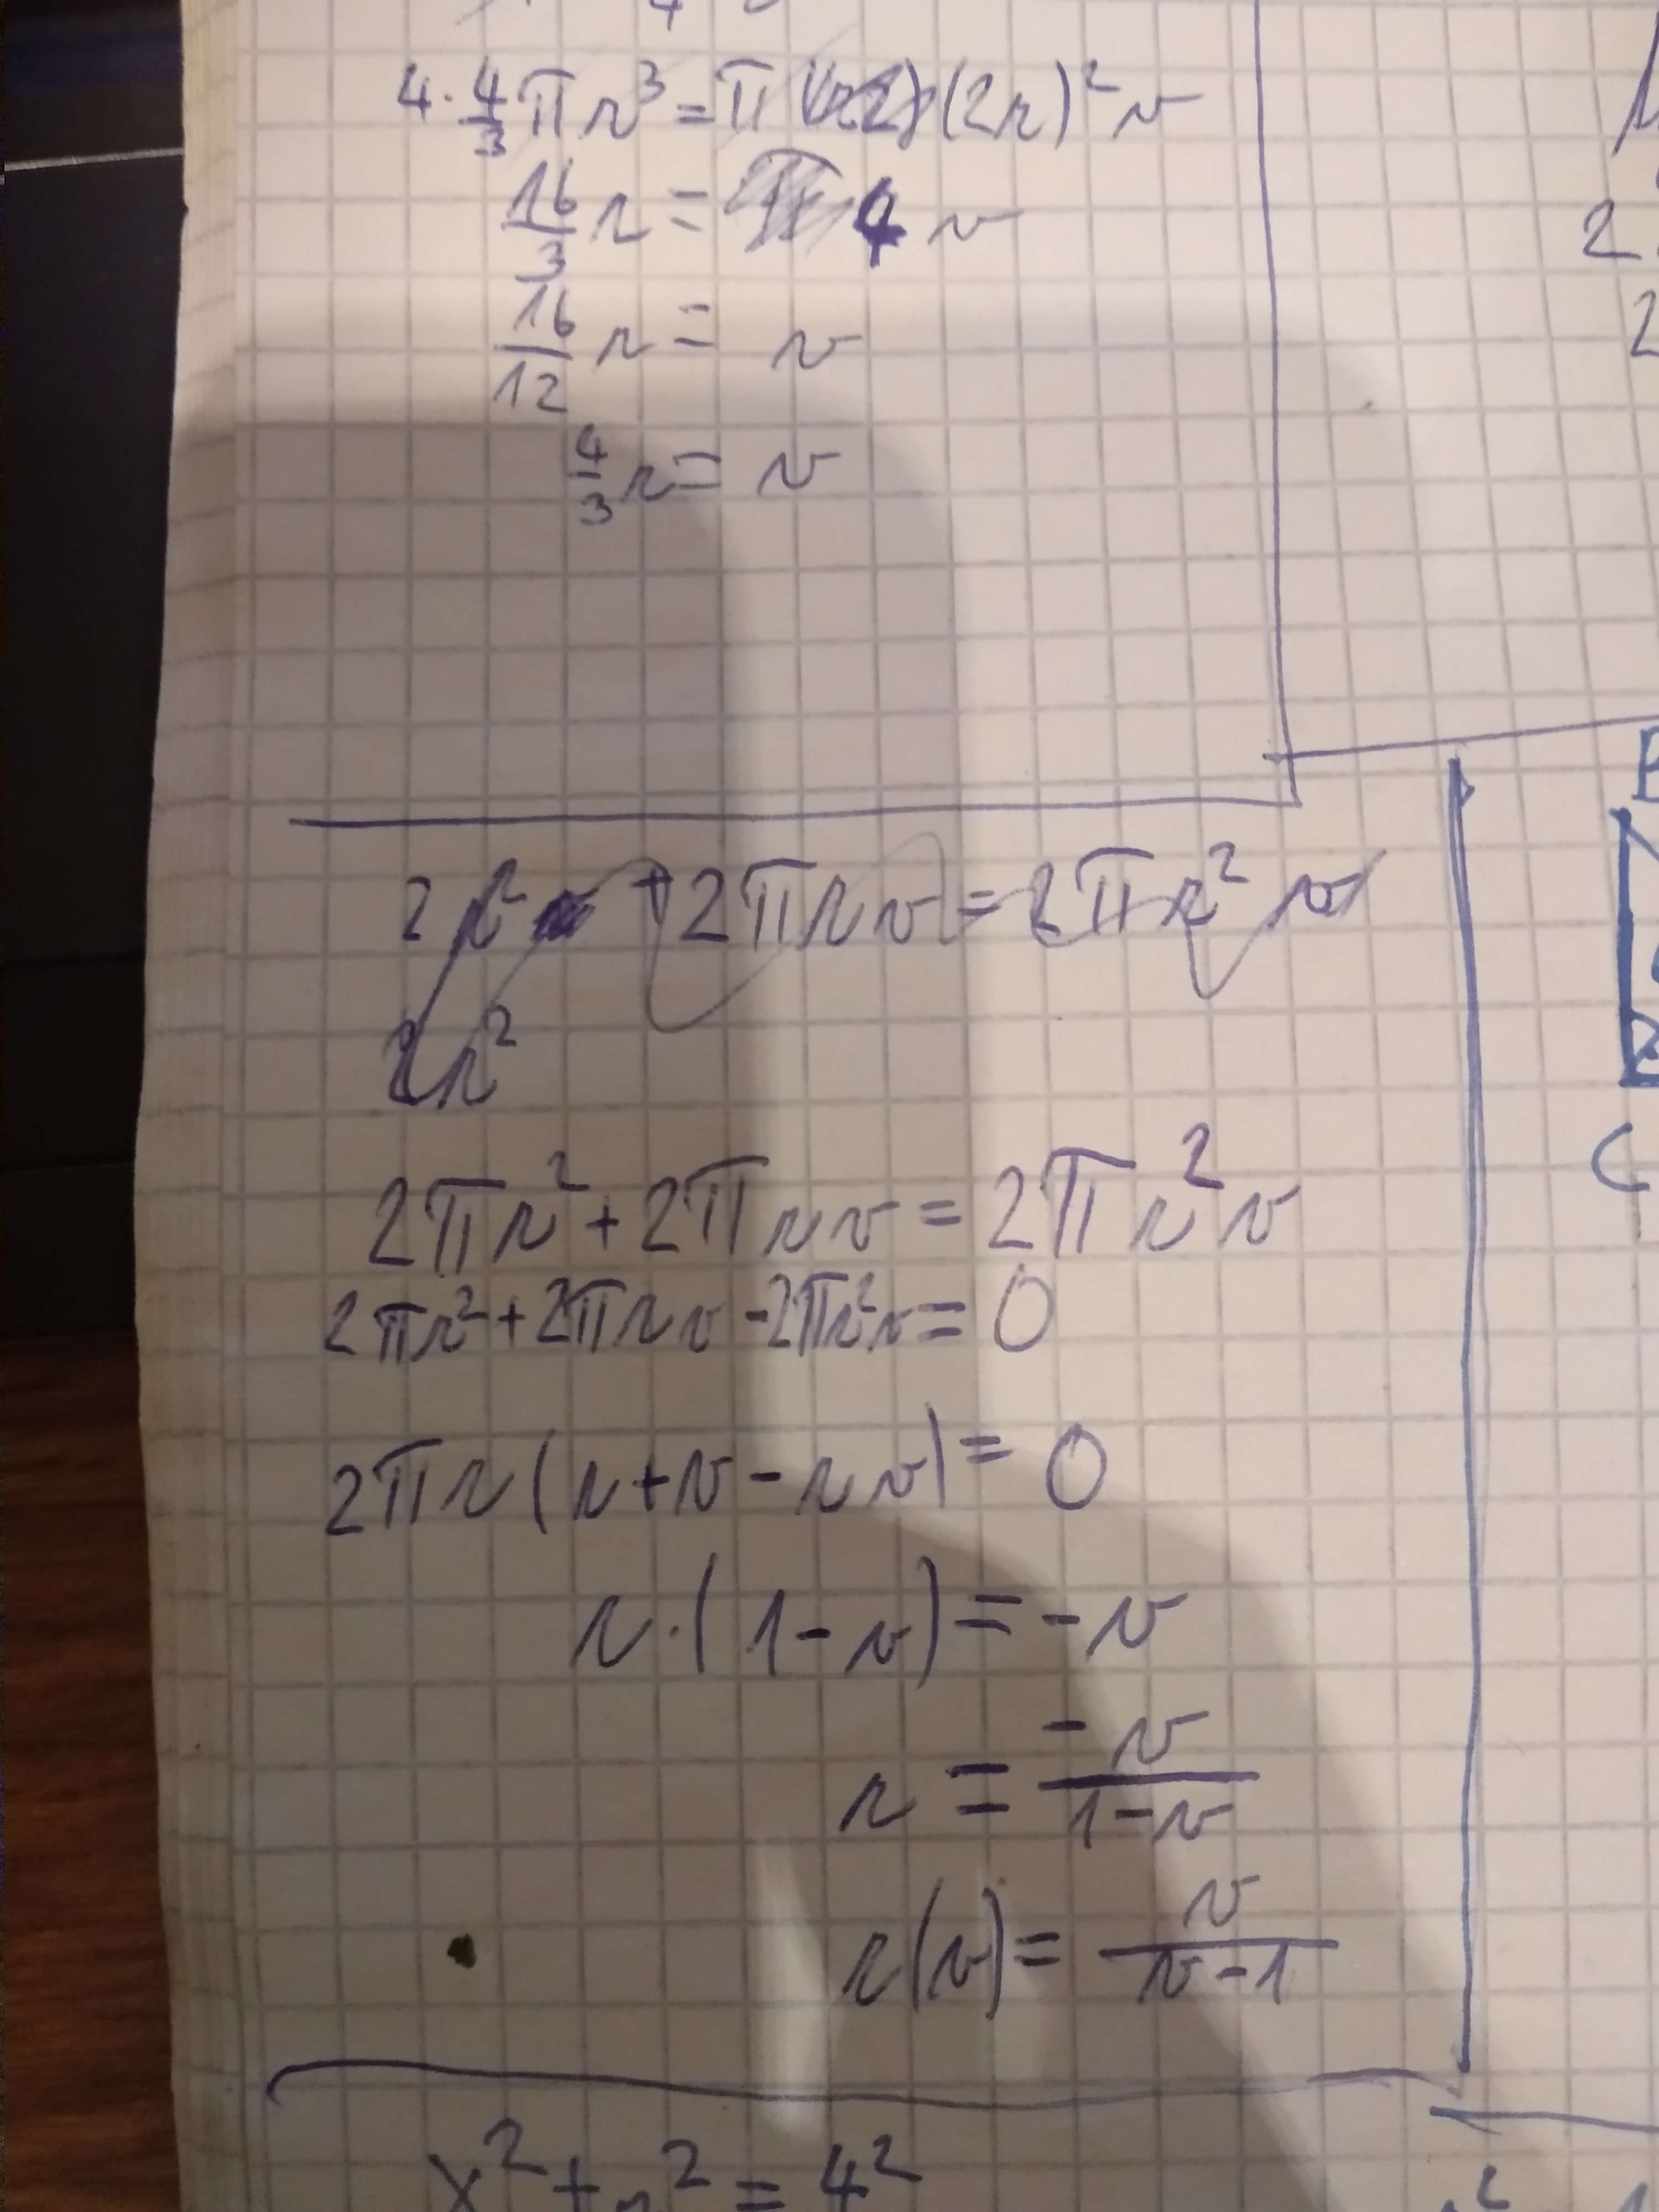 4·4/3πr³=π(2r)²v
16/3 r = 4 v
16/12 r = v
4/3 r = v
2r² +2πrv=2πr² v
2r²
2πr²+2πrv=2πr²v
2πr²+2πrv-2πr²v=0
2πr(r+v-rv)=0
r·(1-v)=-v
r = -v/1-v
r(v)= v/v-1